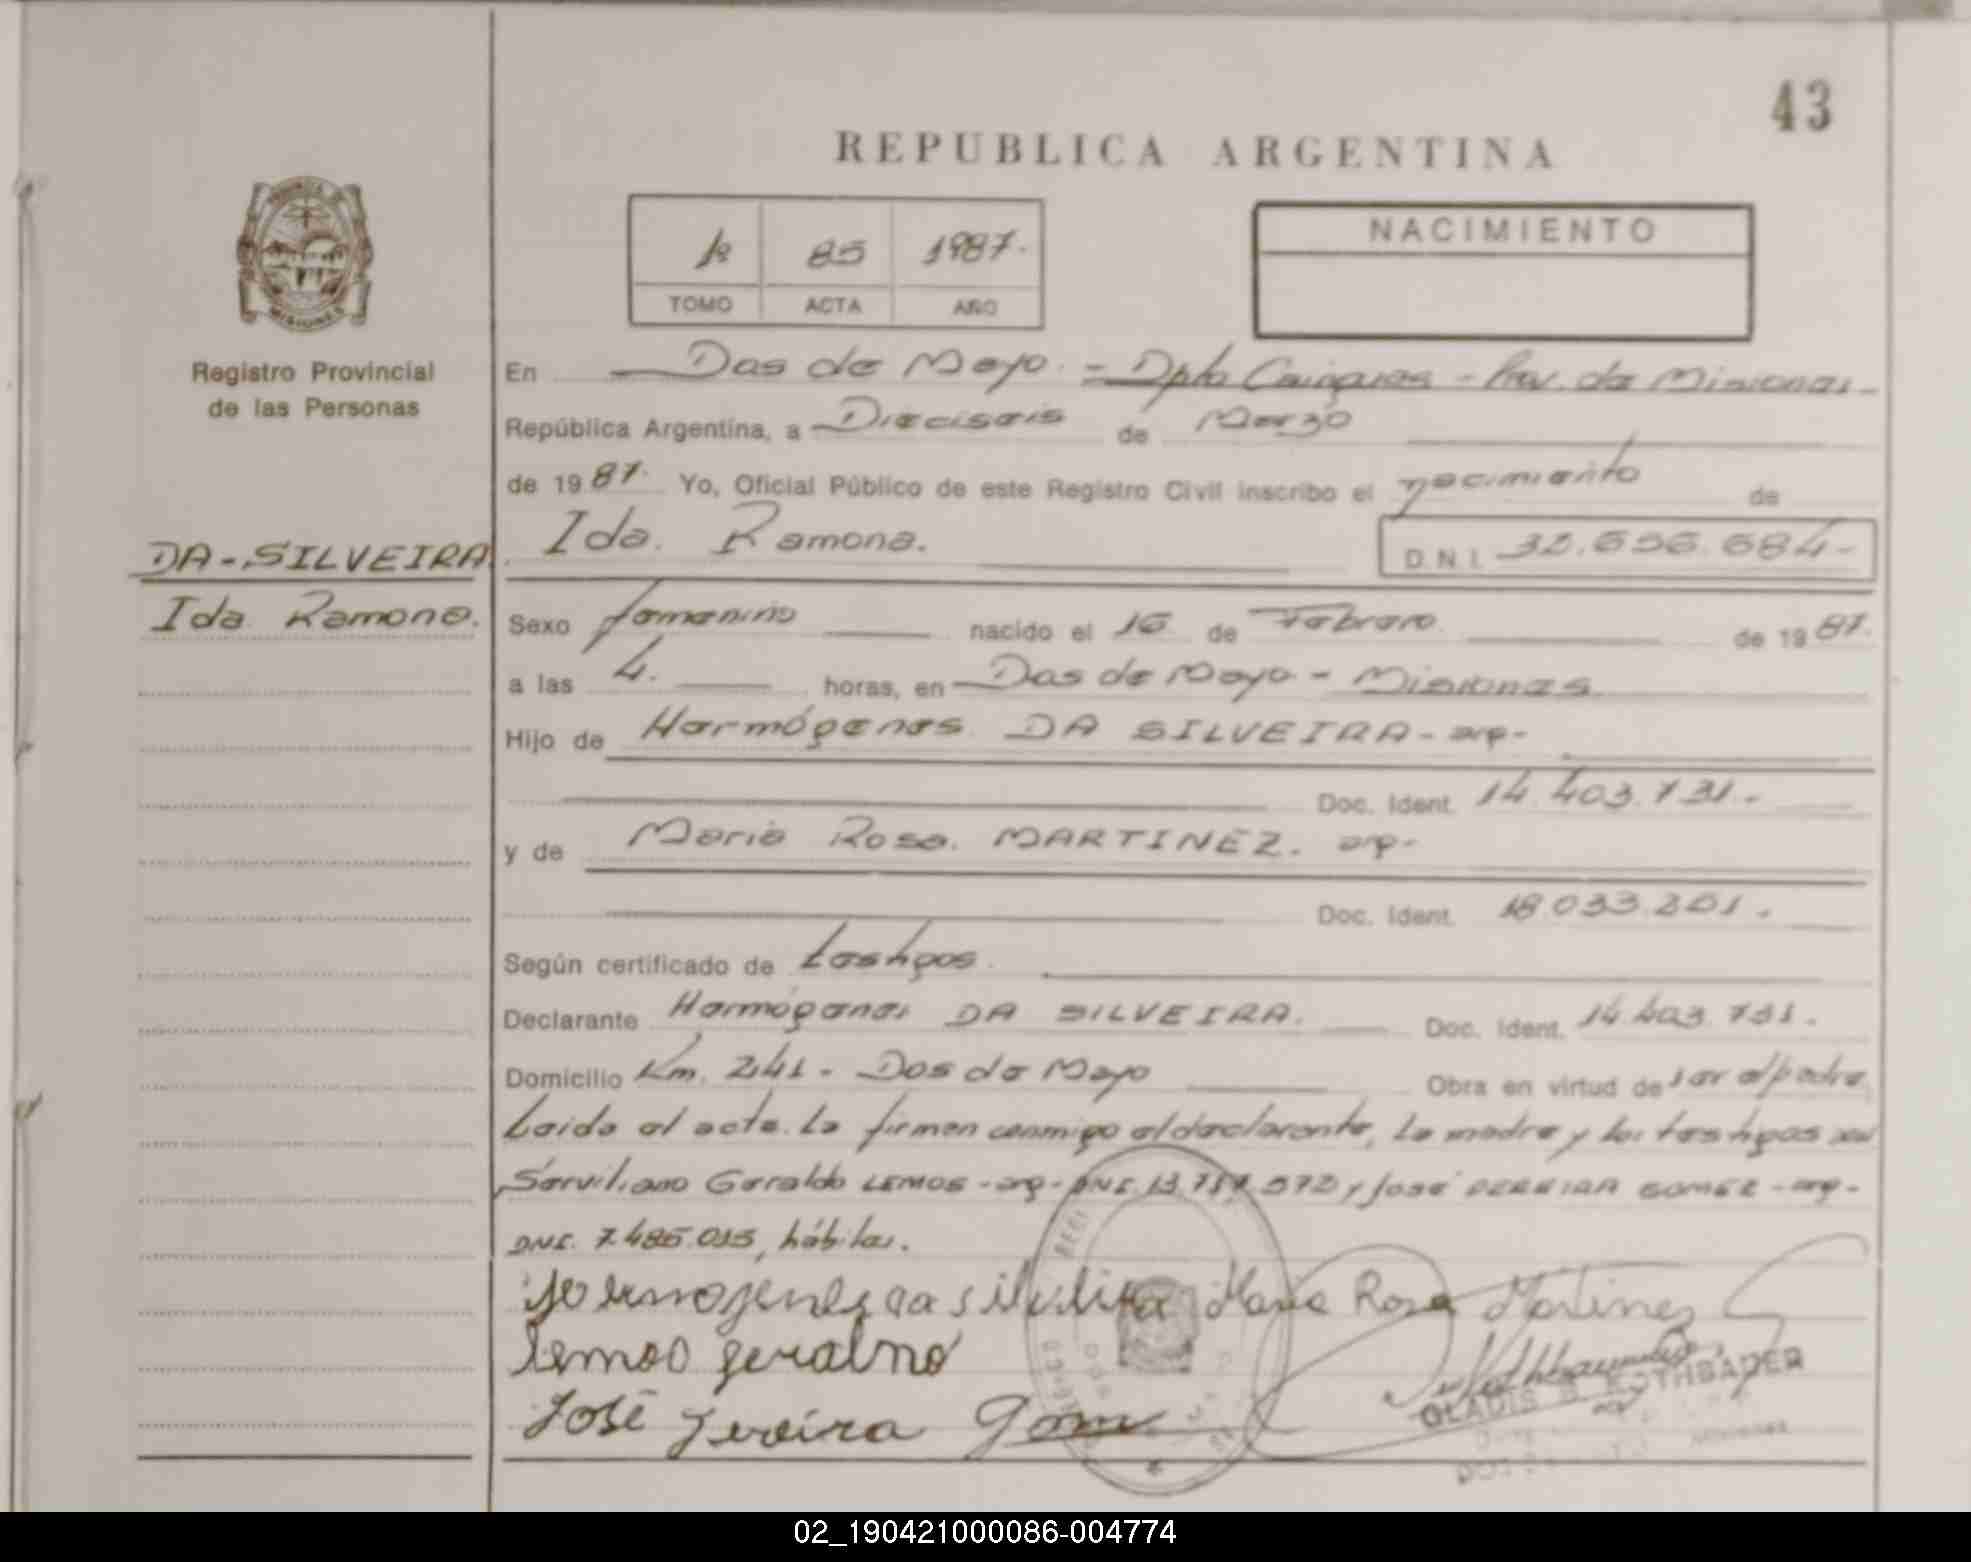 43
REPUBLICA ARGENTINA
1º 85 1987.
TOMO ACTA AÑO
NACIMIENTO
MISIONES
Registro Provincial
de las Personas
En Dos de Mayo - Dpto Cainguas - Prov. de Misiones -
República Argentina, a Dieciseis de Marzo
de 1987. Yo, Oficial Público de este Registro Civil inscribo el nacimiento de
DA-SILVEIRA Ida Ramona. D.N.I. 32.656.684-
Ida Ramona. Sexo femenino nacido el 16 de Febrero de 1987.
a las 4. horas, en Dos de Mayo - Misiones
Hijo de Hermógenes DA SILVEIRA - arg-
Doc. Ident. 14.403.731.-
y de Maria Rosa MARTINEZ. arg-
Doc. Ident. 18.033.201.
Según certificado de testigos.
Declarante Hermógenes DA SILVEIRA. Doc. Ident. 14.403.731.
Domicilio Km. 241 - Dos de Mayo Obra en virtud de ser el padre
Leida el acta. La firman conmigo el declarante, la madre y los testigos
Serviliano Geraldo LEMOS - arg - DNI. 13.757.572 y José PEREIRA GOMEZ - arg-
DNI. 7.485.015, hábiles.
Maria Rosa Martinez
Lemos
José Pereira Gom
GLADIS B. ROTHBADER
02_190421000086-004774